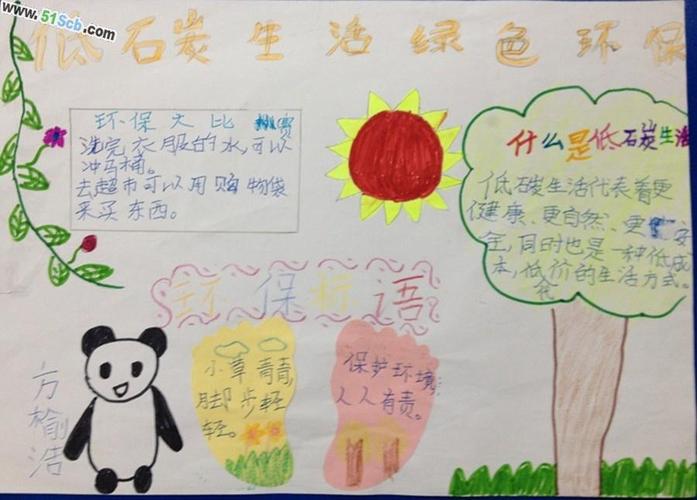 www.51Scb.com
低碳生活绿色环保
环保大比赛
洗完衣服的水,可以
冲马桶。
去超市可以用购物袋
来买东西。
什么是低碳生活
低碳生活代表着更
健康、更自然、更安
全,同时也是一种低成
本,低代价的生活方式。
环保标语
小草青青,
脚步轻
轻。
保护环境,
人人有责。
方榆洁